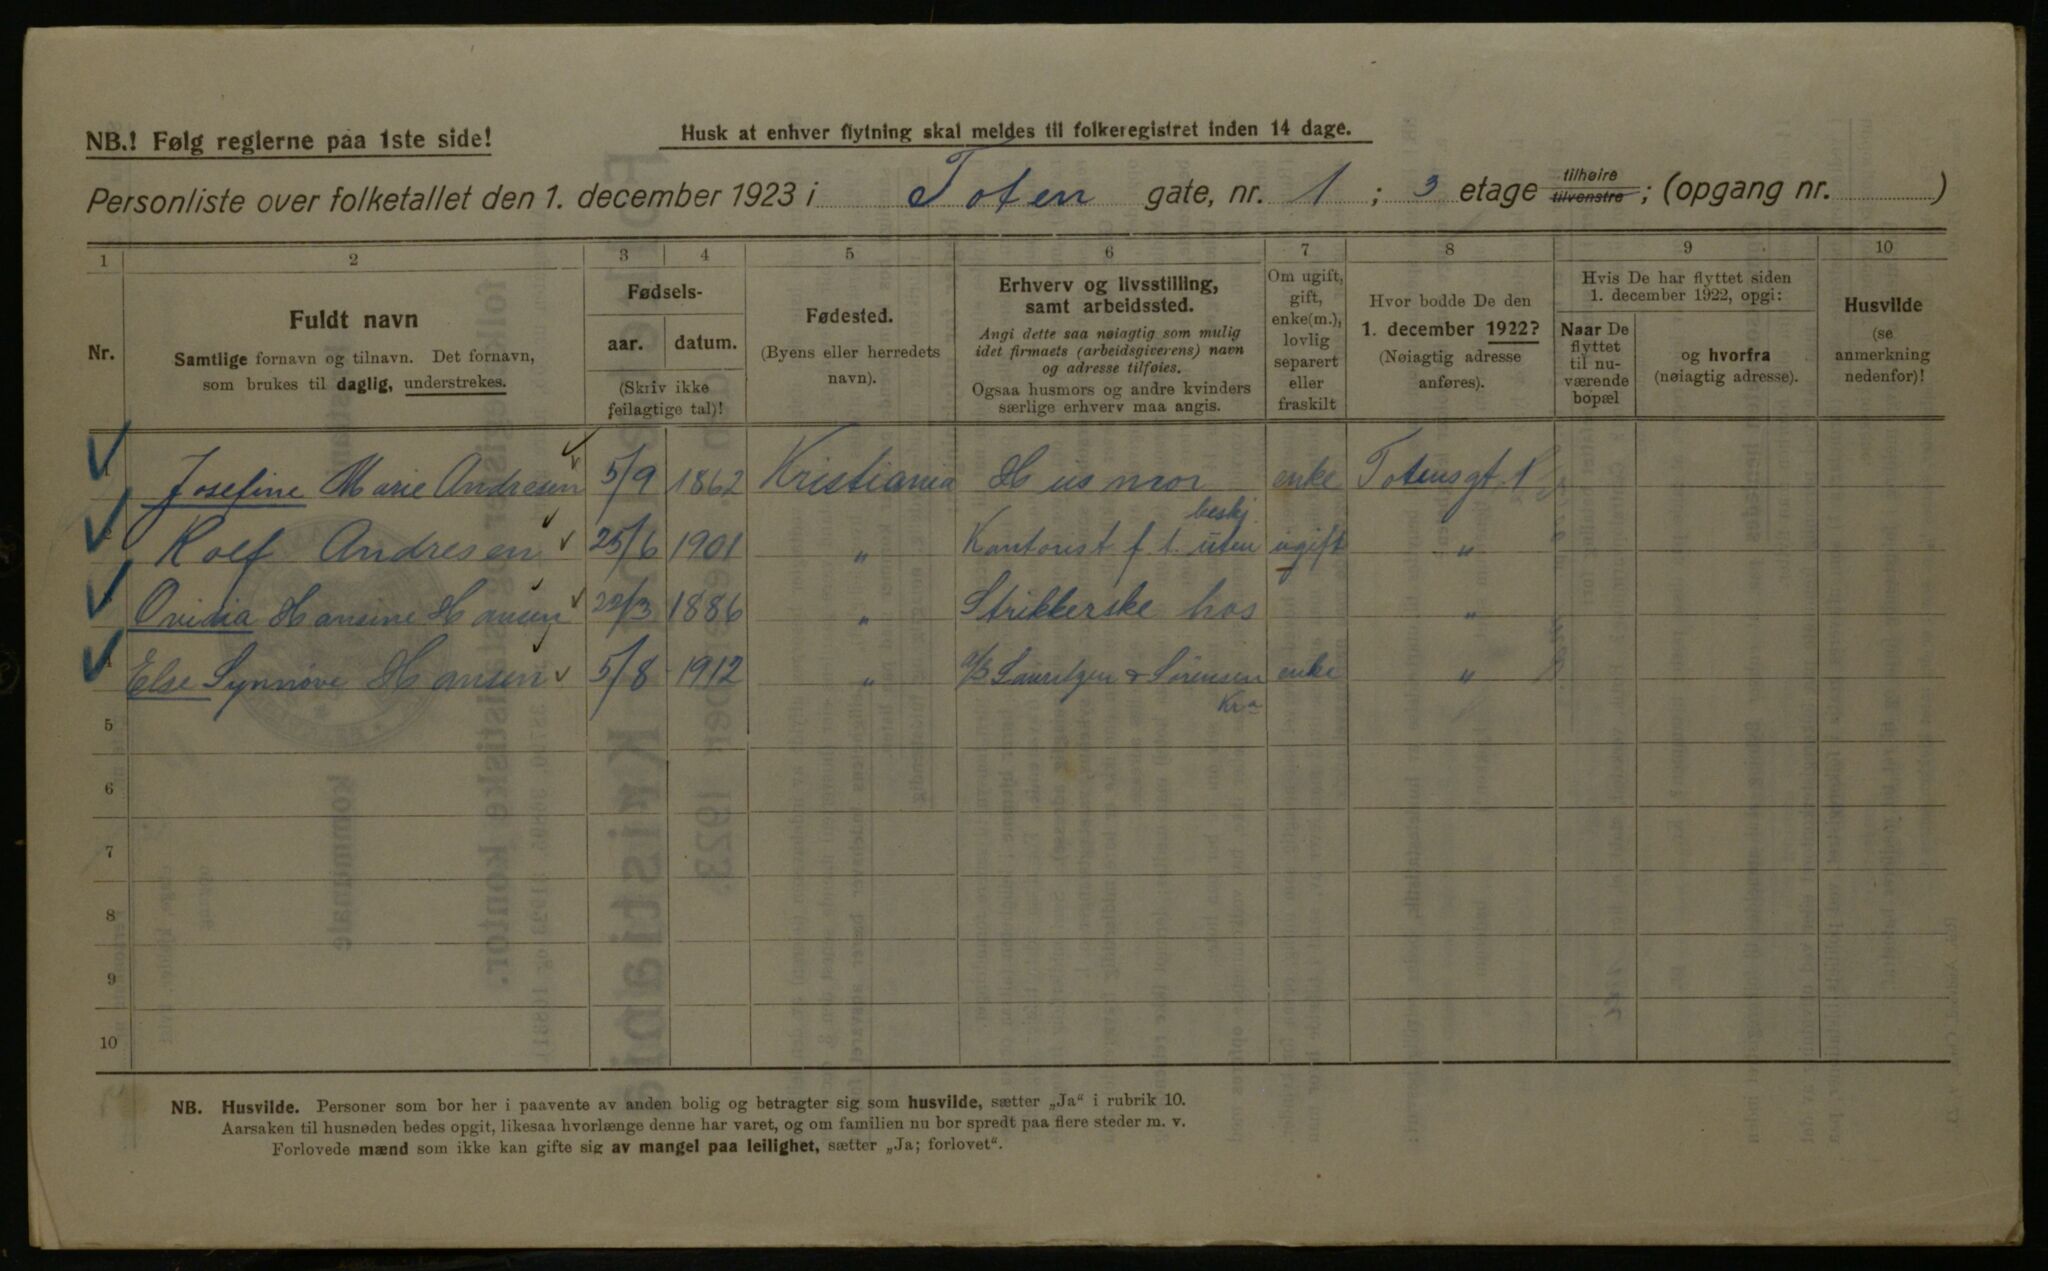 NB.! Følg reglerne paa 1ste side!
Husk at enhver flytning skal meldes til folkeregistret inden 14 dage.
Personliste over folketallet den 1. december 1923 i Toten gate, nr. 1 ; 3 etage tilhøire tilvenstre ; (opgang nr. )
1 2 3 4 5 6 7 8 9 10
Nr.
Fuldt navn
Samtlige fornavn og tilnavn. Det fornavn,
som brukes til daglig, understrekes.
Fødsels-
aar. datum.
(Skriv ikke
feilagtige tal)!
Fødested.
(Byens eller herredets
navn).
Erhverv og livsstilling,
samt arbeidssted.
Angi dette saa nøiagtig som mulig
idet firmaets (arbeidsgiverens) navn
og adresse tilføies.
Ogsaa husmors og andre kvinders
særlige erhverv maa angis.
Om ugift,
gift,
enke(m.),
lovlig
separert
eller
fraskilt
Hvor bodde De den
1. december 1922?
(Nøiagtig adresse
anføres).
Hvis De har flyttet siden
1. december 1922, opgi:
Naar De
flyttet
til nu-
værende
bopæl
og hvorfra
(nøiagtig adresse).
Husvilde
(se
anmerkning
nedenfor)!
1 Josefine Marie Andresen 5/9 1862 Kristiania Husmor enke Totensgt. 1
beskj.
2 Rolf Andresen 25/6 1901 " Kontorist f. t. uten ugift "
Ovidia Hansine Hansen 22/3 1886 " Strikkerske hos "
4 Else Synnøve Hansen 5/8 1912 " A/S Lauritzen & Sørensen enke "
Kr.a
5
6
7
8
9
10
NB. Husvilde. Personer som bor her i paavente av anden bolig og betragter sig som husvilde, sætter „Ja“ i rubrik 10.
Aarsaken til husnøden bedes opgit, likesaa hvorlænge denne har varet, og om familien nu bor spredt paa flere steder m. v.
Forlovede mænd som ikke kan gifte sig av mangel paa leilighet, sætter „Ja; forlovet“.